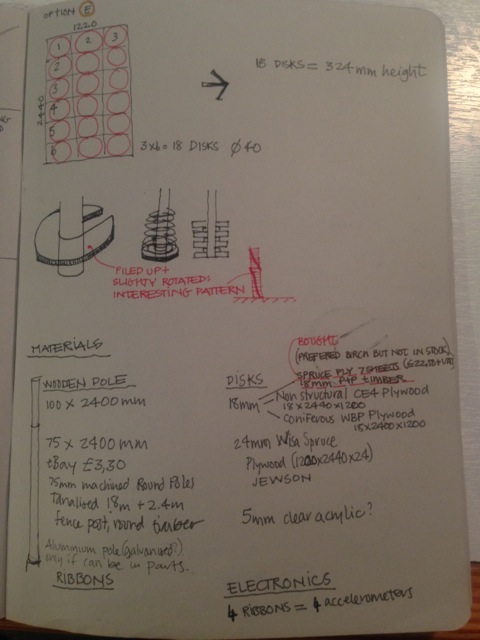 OPTION E
1220
1 2 3
2
3
4
5
6
2440
3x6 = 18 DISKS Ø40
18 DISKS = 324mm height
PILED UP +
SLIGHTLY ROTATED:
INTERESTING PATTERN
MATERIALS
WOODEN POLE
100 x 2400 mm
75 x 2400 mm
eBay £3,30
75mm machined Round Poles
Tanalised 1.8m + 2.4m
fence post, round timber
Aluminium pole (galvanised?)
only if it can be in parts.
RIBBONS
BOUGHT:
(PREFERED BIRCH BUT NOT IN STOCK)
SPRUCE PLY 7 SHEETS
18mm PYP TIMBER
DISKS
18mm
Non structural CE4 Plywood
18 x 2440 x 1200
Coniferous WBP Plywood
18 x 2400 x 1200
24mm Wisa Spruce
Plywood (1200x2440x24)
JEWSON
5mm clear acrylic?
ELECTRONICS
4 RIBBONS = 4 accelerometers